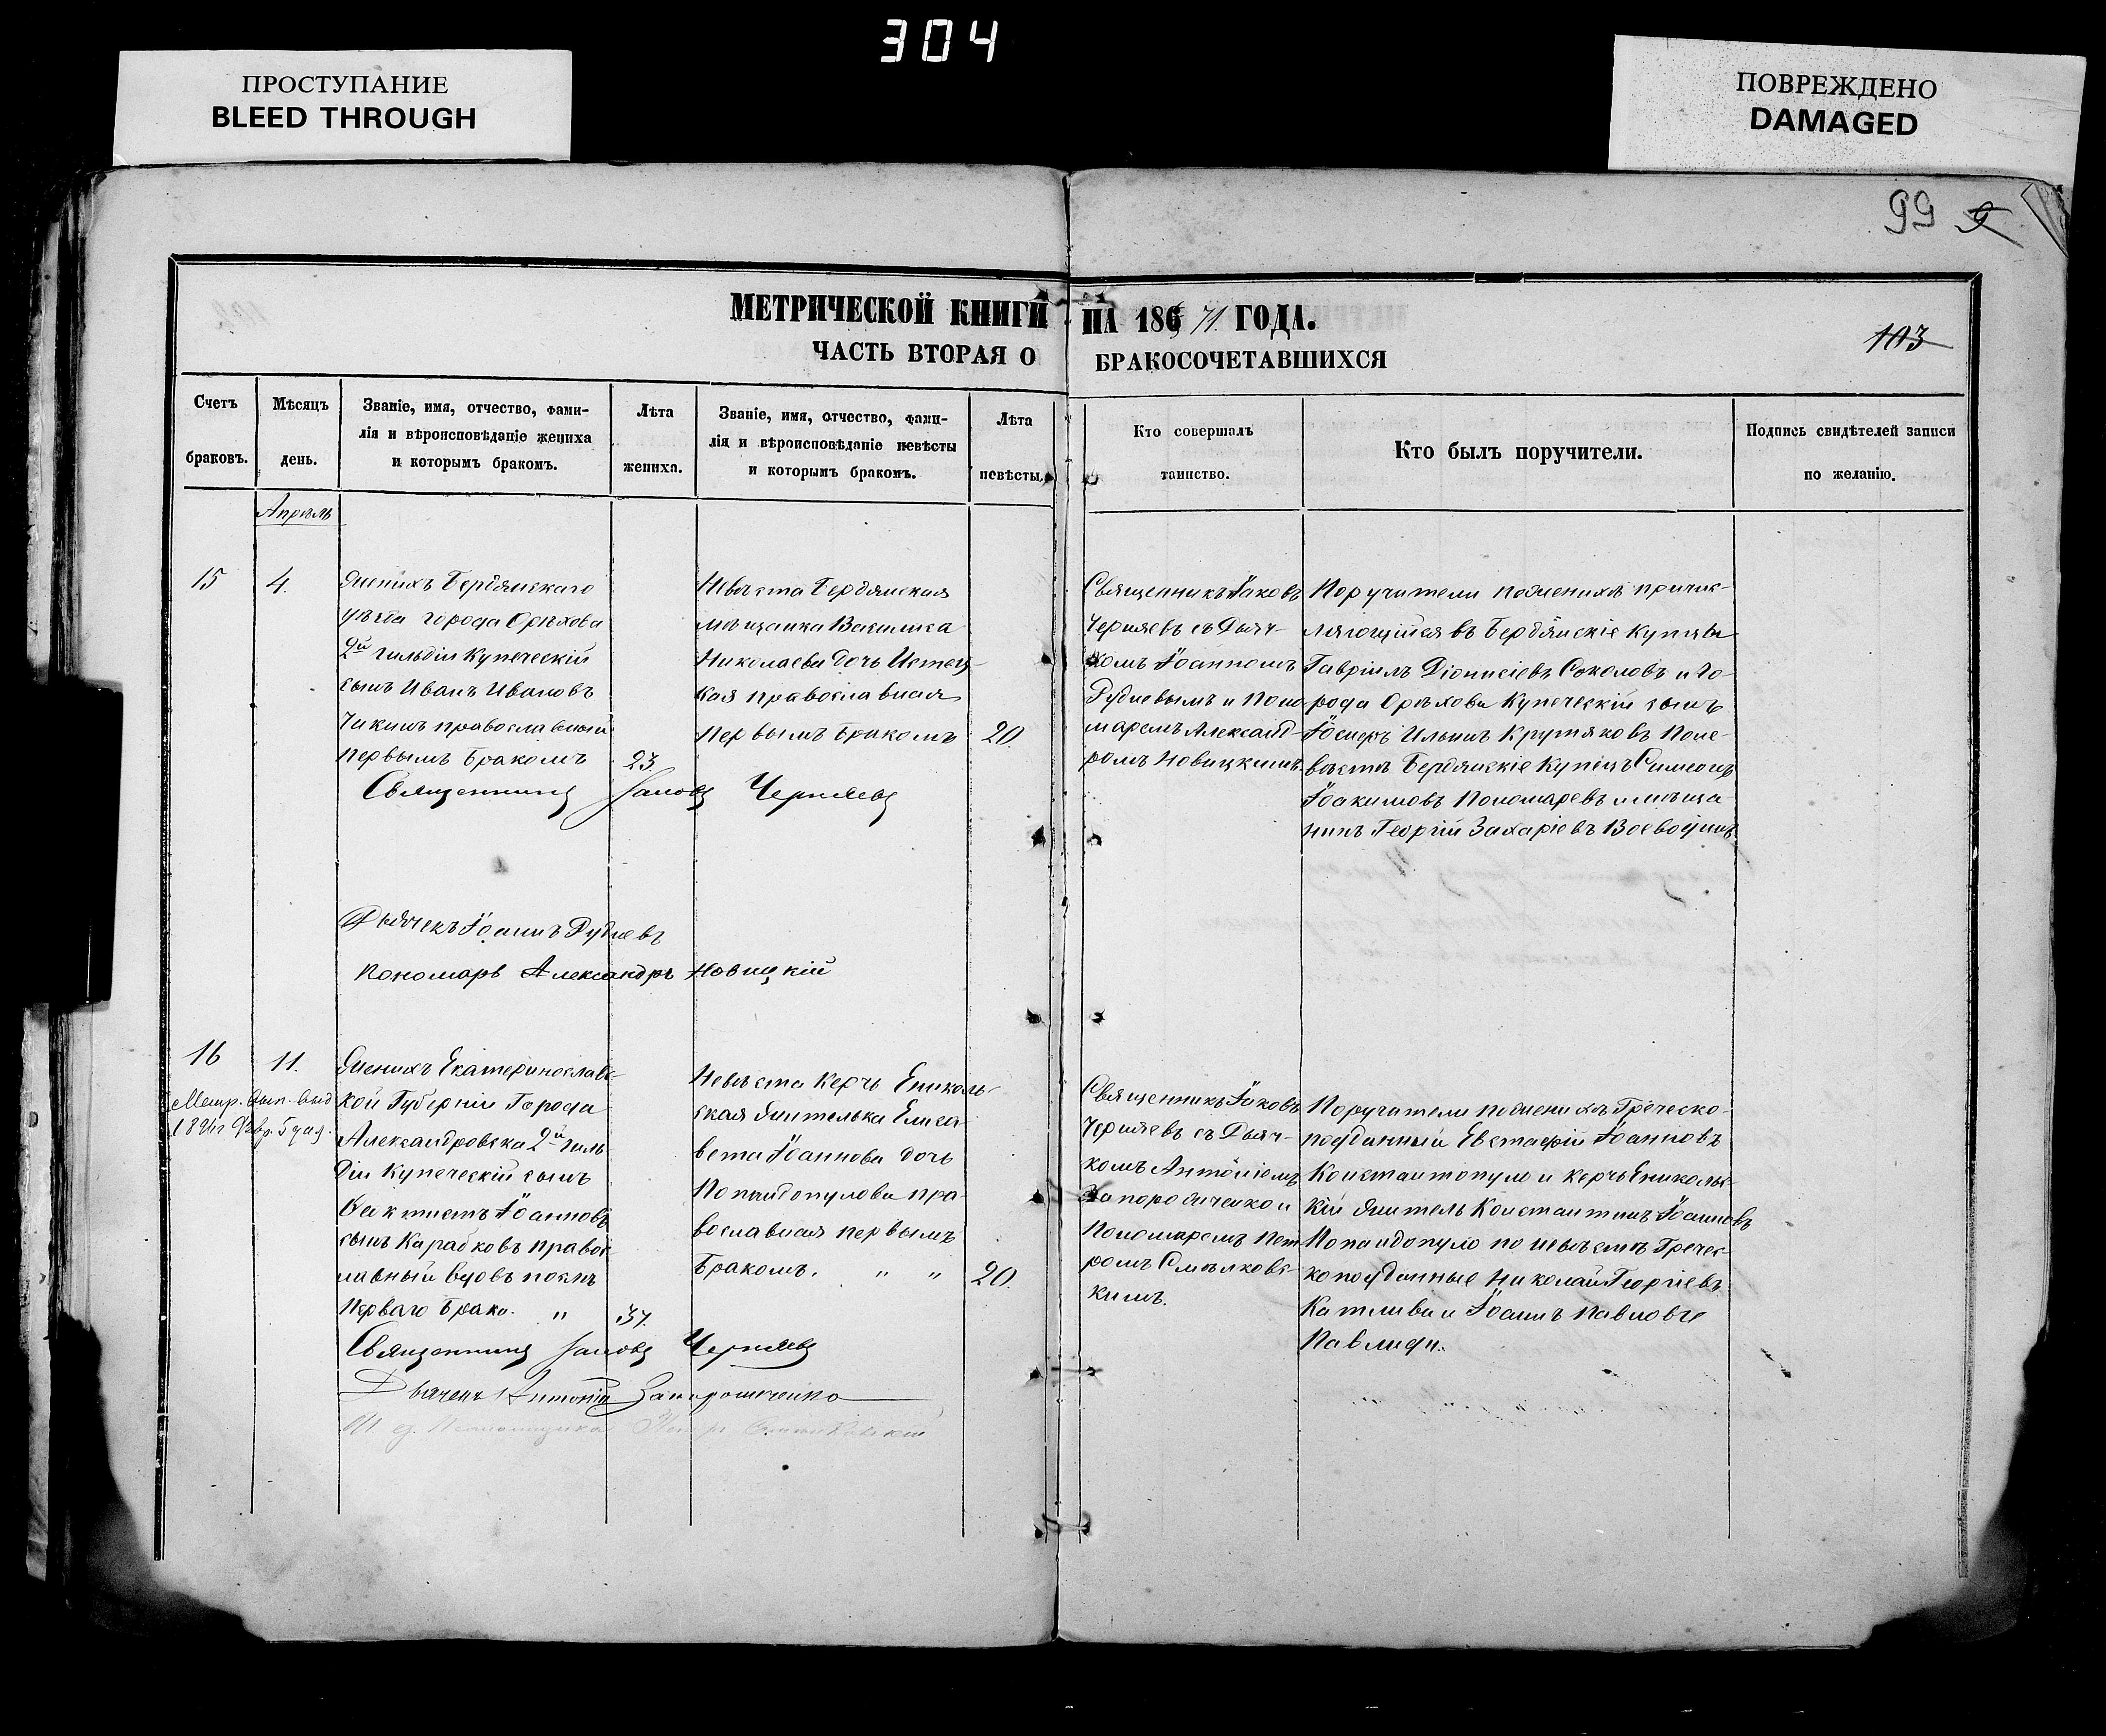 304
ПРОСТУПАНИЕ
BLEED THROUGH
ПОВРЕЖДЕНО
DAMAGED
99
МЕТРИЧЕСКОЙ КНИГИ НА 1871 ГОДА.
103
ЧАСТЬ ВТОРАЯ О БРАКОСОЧЕТАВШИХСЯ
Счетъ браковъ.
Мѣсяцъ день.
Званіе, имя, отчество, фами-
лія и вѣроисповѣданіе жениха
и которымъ бракомъ.
Лѣта
жениха.
Званіе, имя, отчество, фами-
лія и вѣроисповѣданіе невѣсты
и которымъ бракомъ.
Лѣта
невѣсты.
Кто совершалъ
таинство.
Кто былъ поручители.
Подпись свидѣтелей записи
по желанію.
Апрѣль
15
4.
Женихъ Бердянскаго
уѣзда города Орѣхова
2й гильдіи Купеческій
сынъ Иванъ Ивановъ
Чикинъ православный
первымъ бракомъ
23.
Невѣста Бердянская
мѣщанка
Николаева дочь
кая православная
первымъ бракомъ
20.
Священникъ Іаковъ
Черняевъ съ Дьяч-
комъ Іоанномъ
Рудневымъ и Поно
маремъ Александ-
ромъ Новицкимъ.
Поручители по женихѣ причис-
ляющійся въ Бердянскіе Купцы
Гавріилъ Діонисіевъ Соколовъ и го-
рода Орѣхова Купеческій сынъ
Іосифъ Ильинъ Крутяковъ По не-
вѣстѣ Бердянскіе Купецъ Симеонъ
Іоакимовъ Пономаревъ и мѣща-
нинъ Георгій Захаріевъ Воеводинъ
Священникъ Іаковъ Черняевъ
Дьячекъ Іоаннъ Рудневъ
Пономарь Александръ Новицкій
16
11.
Метр. вып. выд.
Женихъ Екатеринославс-
кой Губерніи Города
Александровска 2й гиль
діи купеческій сынъ
Ѳеоктистъ Іоанновъ
сынъ Карабковъ правос
лавный вдовъ послѣ
перваго брака. "
37.
Невѣста Керчь Ениколь-
ская жителька Елиса-
вета Іоаннова дочь
Попандопулова пра-
вославная первымъ
бракомъ. " "
20.
Священникъ Іаковъ
Черняевъ съ Дьяч-
комъ Антоніемъ
Запорожченко и
Пономаремъ Пет
ромъ Смѣлковс-
кимъ.
Поручители по женихѣ Греческо-
подданный Евстафій Іоанновъ
Константопуло и Керчь Еникольс-
кій житель Константинъ Іоанновъ
Попандопуло по невѣстѣ Гречес-
коподданные Николай Георгіевъ
Катлива и Іоаннъ Павловъ
Павлиди.
Священникъ Іаковъ Черняевъ
Дьячекъ Антоній Запорожченко